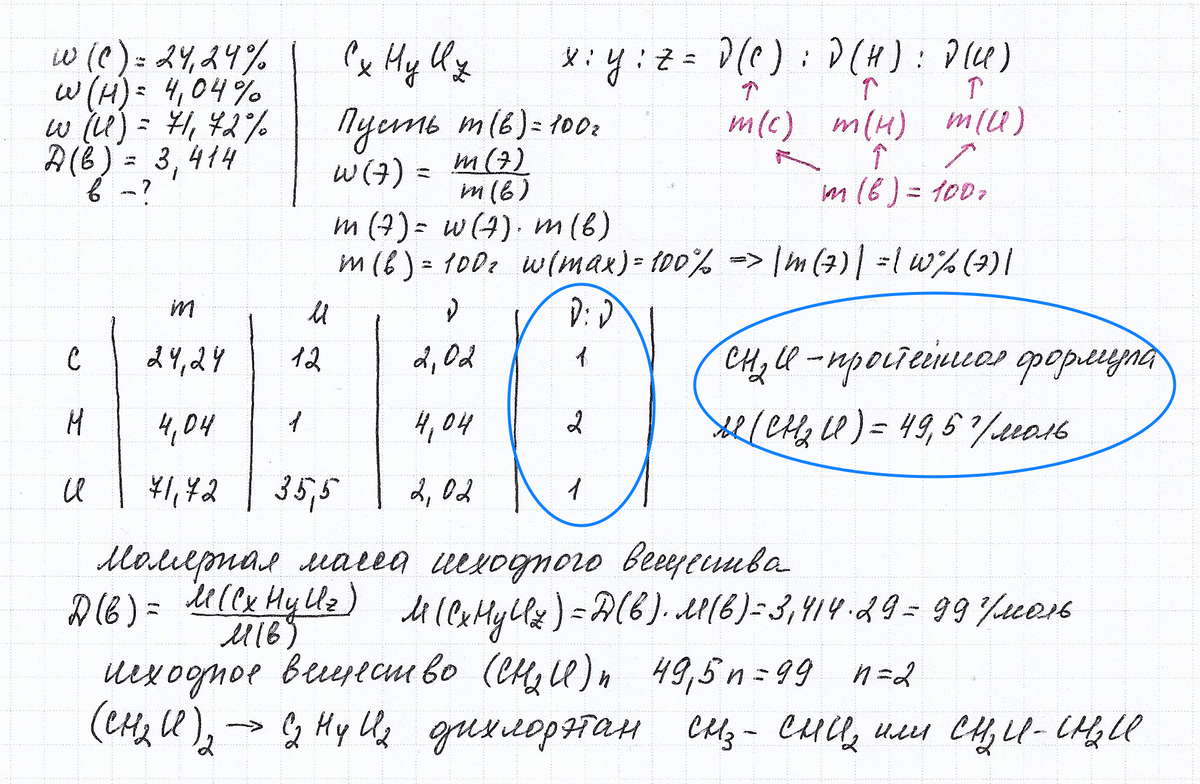 w(C) = 24,24%
w(H) = 4,04%
w(Cl) = 71,72%
D(в) = 3,414
в – ?
CxHyClz x : y : z = ν(C) : ν(H) : ν(Cl)
↑ ↑ ↑
m(C) m(H) m(Cl)
m(в) = 100г
Пусть m(в) = 100г
w(Э) = m(Э)/m(в)
m(Э) = w(Э) · m(в)
m(в) = 100г w(max) = 100% => |m(Э)| = |w%(Э)|
m M ν ν:ν
C 24,24 12 2,02 1
H 4,04 1 4,04 2
Cl 71,72 35,5 2,02 1
CH₂Cl – простейшая формула
M(CH₂Cl) = 49,5 г/моль
Молярная масса исходного вещества
D(в) = M(CxHyClz)/M(в) M(CxHyClz) = D(в) · M(в) = 3,414 · 29 = 99 г/моль
исходное вещество (CH₂Cl)n 49,5n = 99 n = 2
(CH₂Cl)₂ → C₂H₄Cl₂ дихлорэтан CH₃ – CHCl₂ или CH₂Cl – CH₂Cl